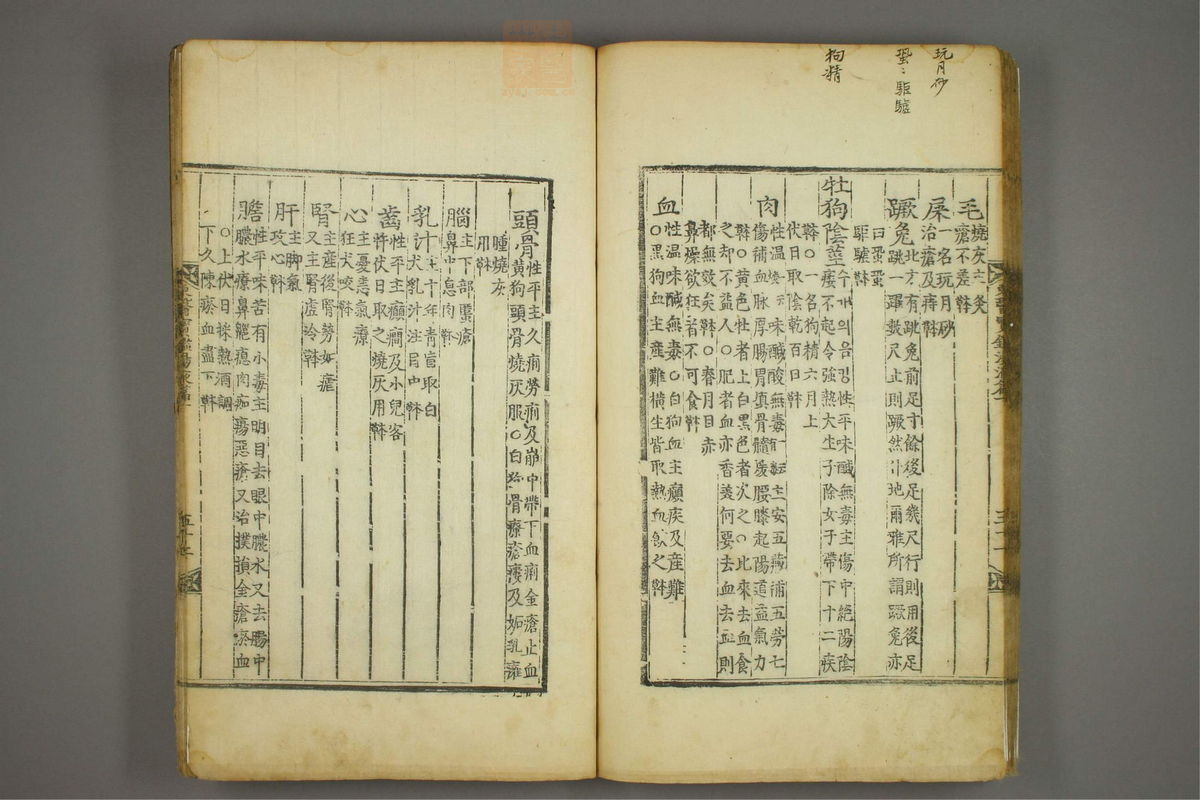 玩月砂
蛩〻駏驉
狗精
毛燒灰主灸
瘡不差本草
屎一名玩月砂
治瘡及痔本草
蹶兔北方有跳兔前足寸餘後足幾尺行則用後足
跳一躍數尺止則蹶然仆地爾雅所謂蹶兔亦
曰蛩蛩
駏驉本草
牡狗陰莖수개의음경性平味醎無毒主傷中絶陽陰
痿不起令強熱大生子除女子帶下十二疾
本草○一名狗精六月上
伏日取陰乾百日本草
肉性溫味醎酸無毒主安五藏補五勞七
傷補血脉厚腸胃塡骨髓煖腰膝起陽道益氣力
本草○黃色牡者上白黑色者次之○比來去血食
之却不益人○肥者血亦香美何要去血去血則
都無效矣本草○春月目赤
鼻燥欲狂者不可食本草
血性溫味醎無毒○白狗血主癲疾及產難
○黑狗血主產難橫生皆取熱血飮之本草
頭骨性平主久痢勞痢及崩中帶下血痢金瘡止血
黃狗頭骨燒灰服○白狗骨療瘡瘻及妬乳癰
腫燒灰
用本草
腦主下部䘌瘡
鼻中息肉本草
乳汁主十年靑盲取白
犬乳汁注目中本草
齒性平主癲癎及小兒客
忤伏日取之燒灰用本草
心主憂恚氣療
狂犬咬本草
腎主產後腎勞如瘧
又主腎虛冷本草
肝主脚氣
攻心本草
膽性平味苦有小毒主明目去眼中膿水又去腸中
膿水療鼻齆瘜肉痂瘍惡瘡又治撲損金瘡瘀血
○上伏日採熱酒調
下久陳瘀血盡下本草